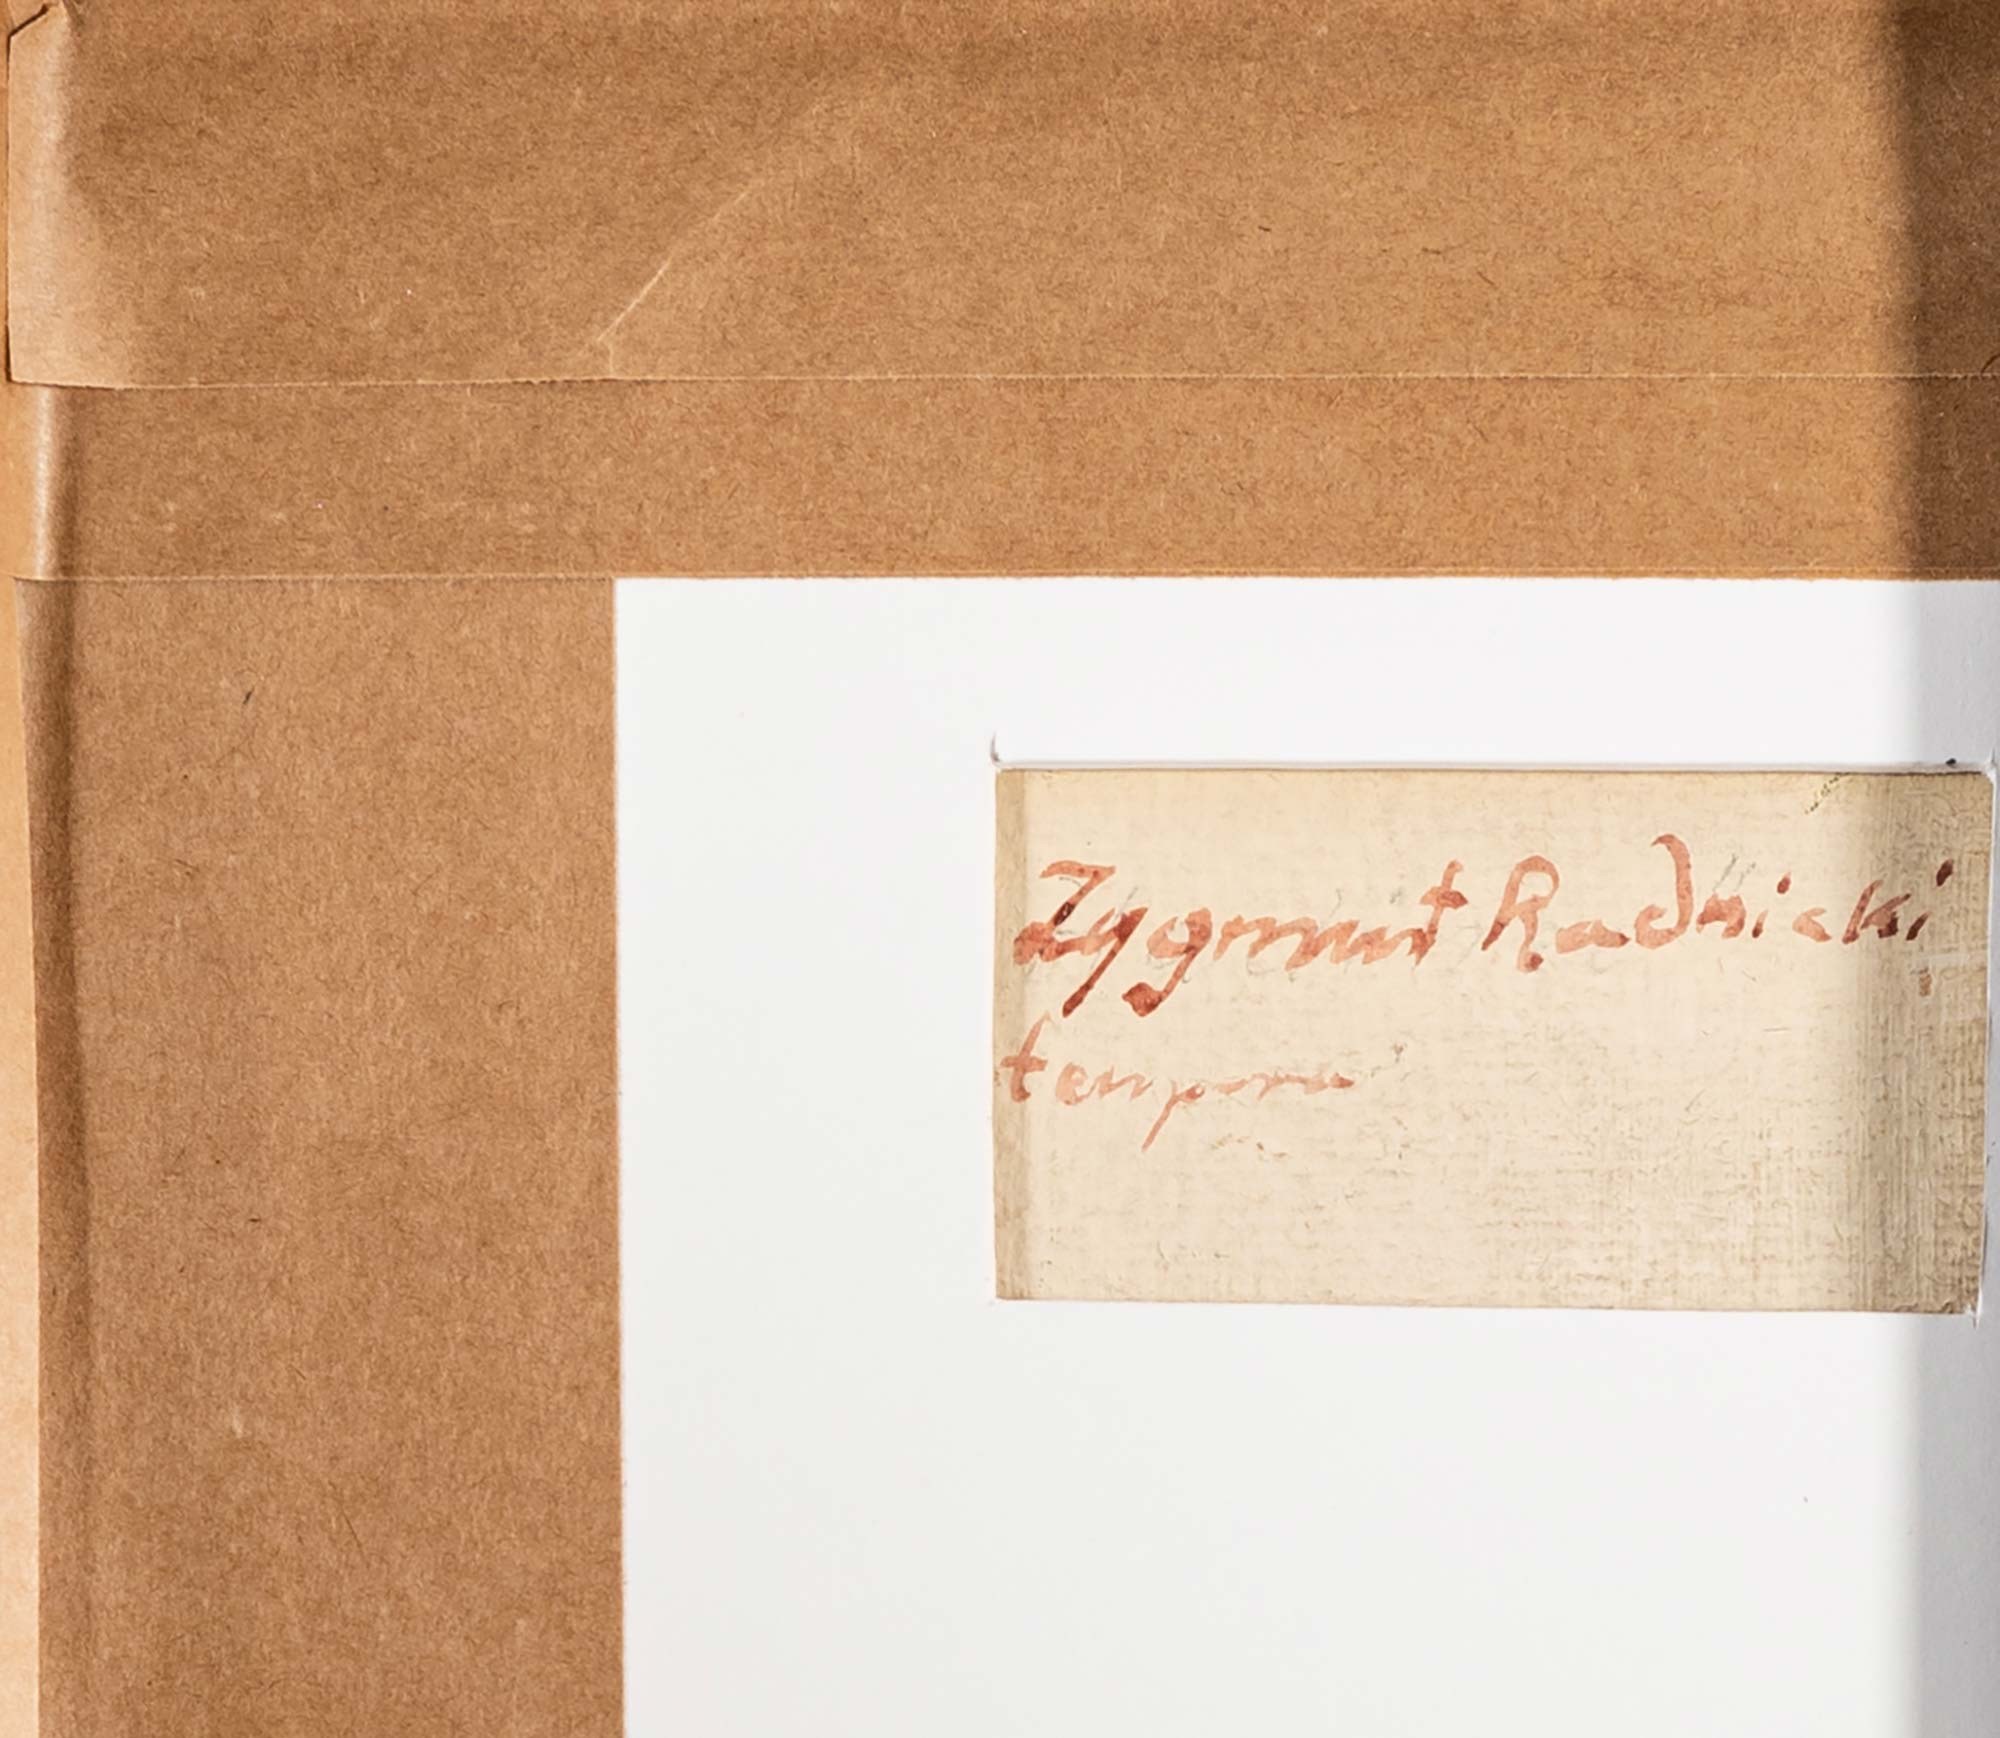 Zygmunt Radnicki
tempera